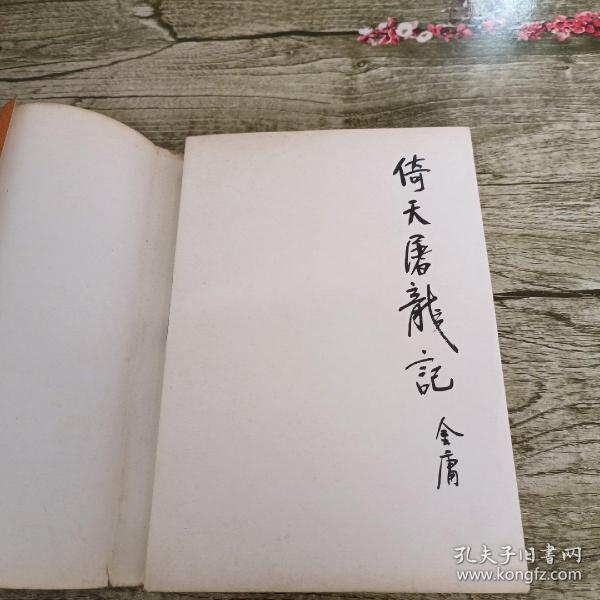 倚天屠龍記
金庸
孔夫子旧书网
www.kongfz.com